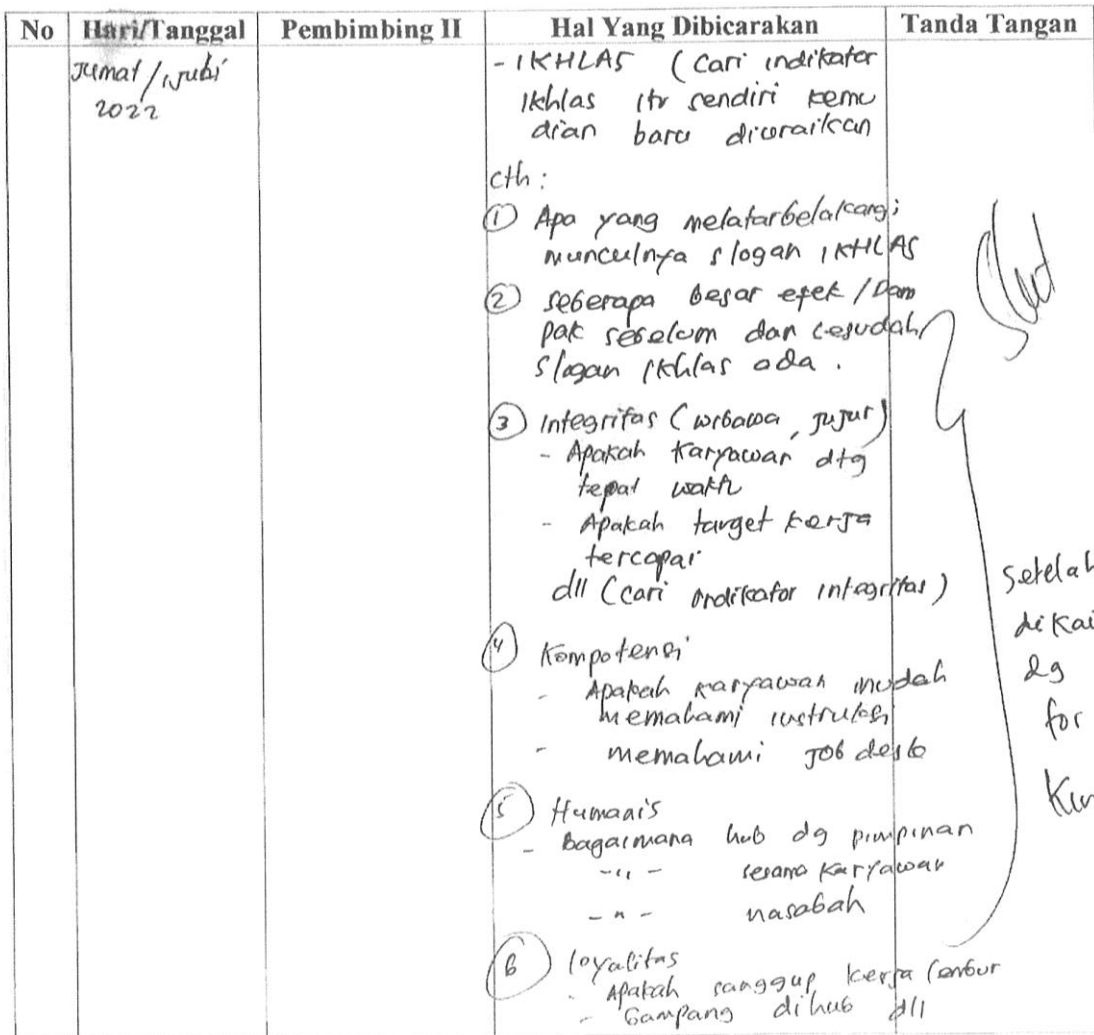 No Hari/Tanggal Pembimbing II Hal Yang Dibicarakan Tanda Tangan
Jumat / 1 Juli
2022
- IKHLAS (Cari indikator
Ikhlas itu sendiri kemu
dian baru diuraikan
cth :
① Apa yang melatarbelakangi
munculnya slogan IKHLAS
② seberapa besar efek / Dam
pak sebelum dan sesudah
slogan Ikhlas ada .
③ Integritas (wibawa, jujur)
- Apakah karyawan dtg
tepat waktu
- Apakah target kerja
tercapai
dll (cari indikator integritas)
④ Kompetensi
- Apakah karyawan mudah
memahami instruksi
- memahami Job desk
⑤ Humanis
- Bagaimana hub dg pimpinan
-〃- sesama karyawan
-〃- nasabah
⑥ Loyalitas
- Apakah sanggup kerja lembur
- Gampang dihub dll
Setelah
dikai
dg
for
Kin